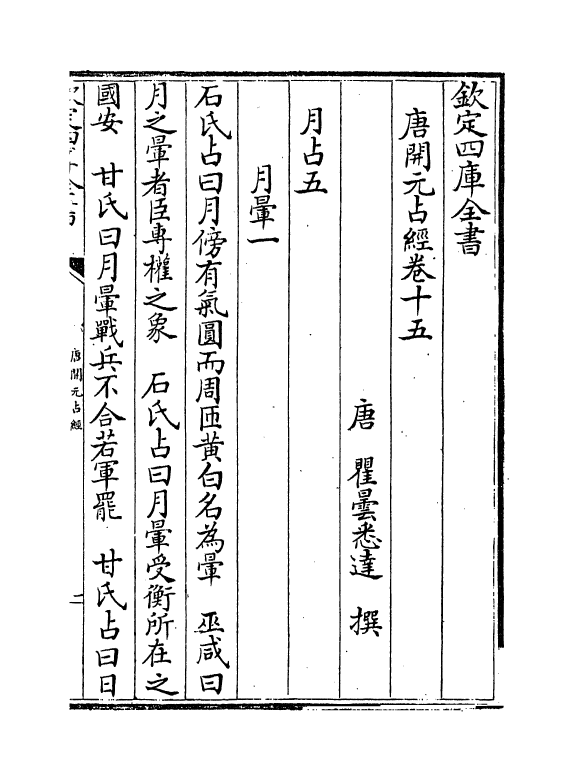 欽定四庫全書
唐開元占經卷十五
唐　瞿曇悉達　撰
月占五
月暈一
石氏占曰月傍有氣圓而周匝黄白名為暈　巫咸曰
月之暈者臣專權之象　石氏占曰月暈受衡所在之
國安　甘氏曰月暈戰兵不合若軍罷　甘氏占曰日
唐開元占經